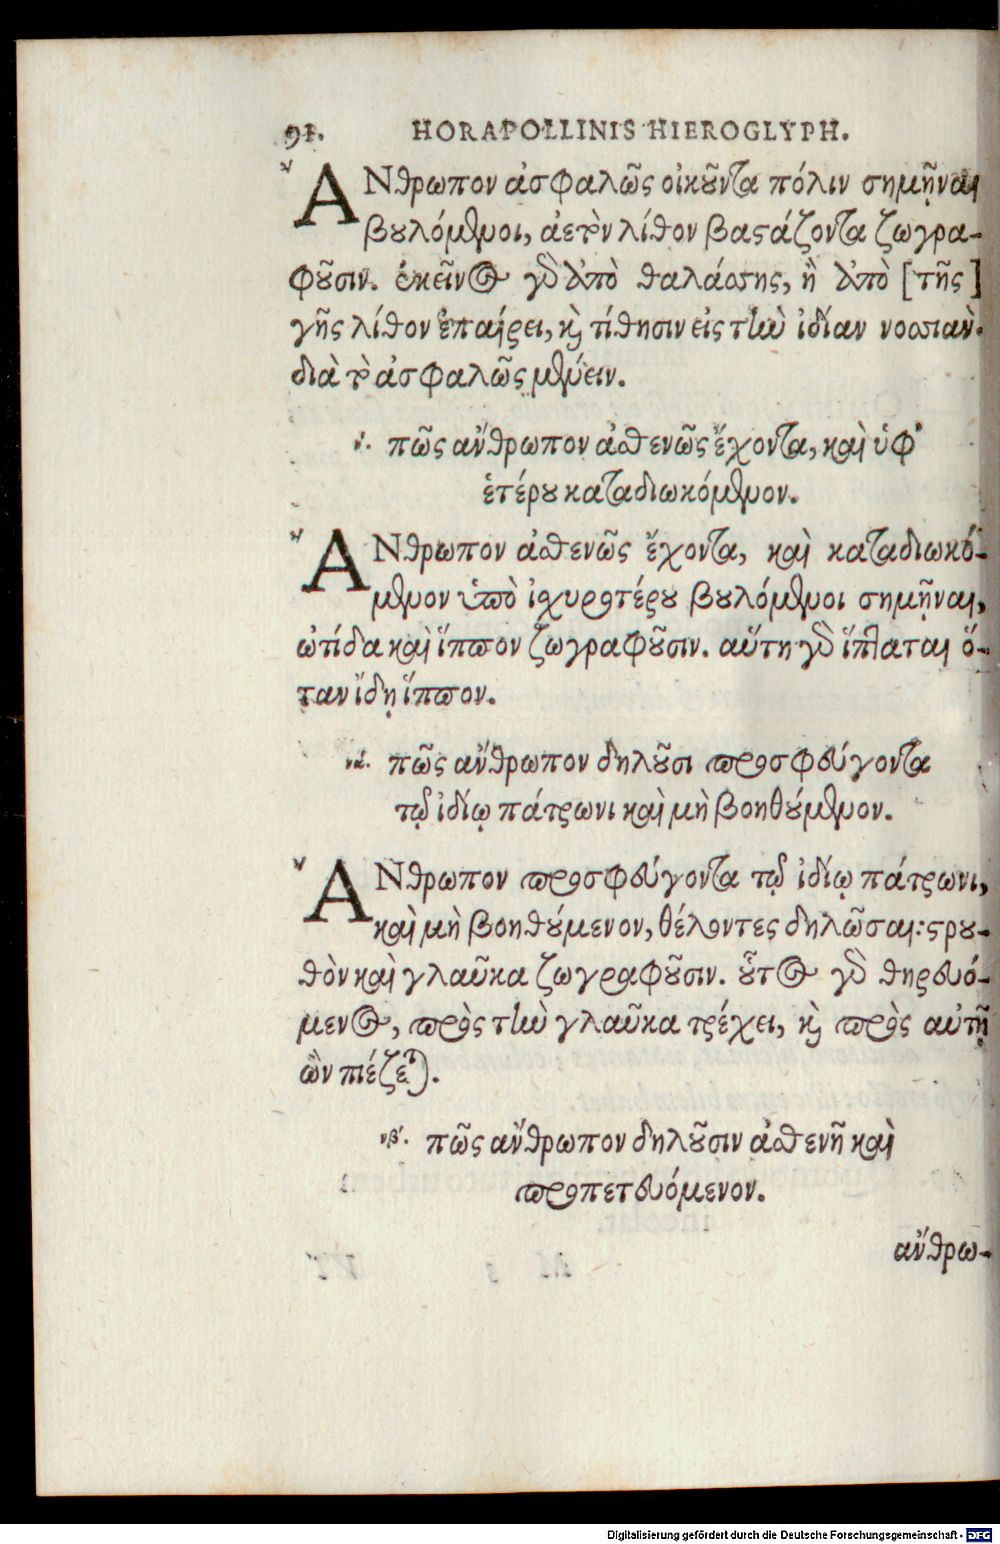 91. HORAPOLLINIS HIEROGLYPH.
ἌΝθρωπον ἀσφαλῶς οἰκοῦντα πόλιν σημῆναι
βουλόμενοι, ἀετὸν λίθον βαστάζοντα ζωγρα-
φοῦσιν. ἐκεῖνος γὸ ἀπὸ θαλάσσης, ἢ ἀπὸ [τῆς]
γῆς λίθον ἐπαίρει, κỳ τίθησιν εἰς τὴν ἰδίαν νοσσιὰν·
διὰ τὸ ἀσφαλῶς μένειν.
ν. πῶς ἄνθρωπον ἀσθενῶς ἔχοντα, καὶ ὑφ᾽
ἑτέρου καταδιωκόμενον.
ἌΝθρωπον ἀσθενῶς ἔχοντα, καὶ καταδιωκό-
μενον ὑπὸ ἰσχυροτέρου βουλόμενοι σημῆναι,
ὠτίδα καὶ ἵππον ζωγραφοῦσιν. αὕτη γὸ ἵπταται ὅ-
ταν ἴδῃ ἵππον.
να. πῶς ἄνθρωπον δηλοῦσι προσφεύγοντα
τῷ ἰδίῳ πάτρωνι καὶ μὴ βοηθούμενον.
ἌΝθρωπον προσφεύγοντα τῷ ἰδίῳ πάτρωνι,
καὶ μὴ βοηθούμενον, θέλοντες δηλῶσαι: στρου-
θὸν καὶ γλαῦκα ζωγραφοῦσιν. οὗτος γὸ θηρευό-
μενος, πρὸς τὴν γλαῦκα τρέχει, κỳ πρὸς αὐτῇ
ὢν πιέζεται.
νβ. πῶς ἄνθρωπον δηλοῦσιν ἀσθενῆ καὶ
προπετευόμενον.
ἄνθρω-
Digitalisierung gefördert durch die Deutsche Forschungsgemeinschaft - DFG